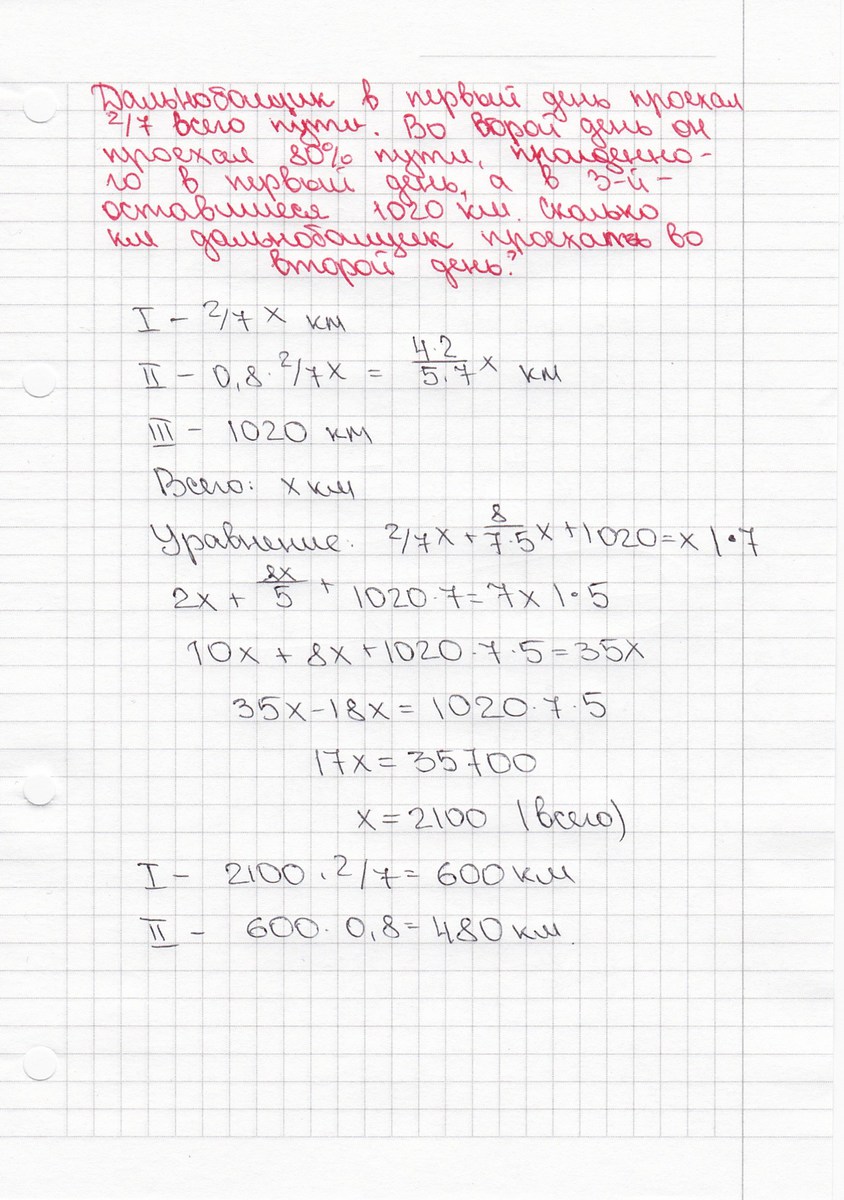 Дальнобойщик в первый день проехал
2/7 всего пути. Во второй день он
проехал 80% пути, пройденно-
го в первый день, а в 3-й -
оставшиеся 1020 км. Сколько
км дальнобойщик проехать во
второй день?
I - 2/7 x км
II - 0,8 · 2/7x = 4·2/5·7 x км
III - 1020 км
Всего: x км
Уравнение: 2/7x + 8/7·5x + 1020 = x | · 7
2x + 8x/5 + 1020·7 = 7x | · 5
10x + 8x + 1020·7·5 = 35x
35x - 18x = 1020·7·5
17x = 35700
x = 2100 (всего)
I - 2100 · 2/7 = 600 км
II - 600 · 0,8 = 480 км.